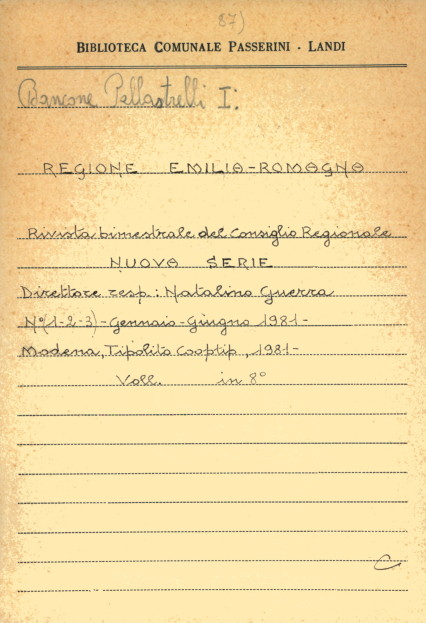 87)
BIBLIOTECA COMUNALE PASSERINI - LANDI
Bancone Pallastrelli I:
REGIONE EMILIA-ROMAGNA
Rivista bimestrale del Consiglio Regionale
NUOVA SERIE
Direttore resp.: Natalino Guerra
N°(1-2-3)-Gennaio-Giugno 1981-
Modena, Tipolito Cooptip, 1981-
Voll. in 8°
C